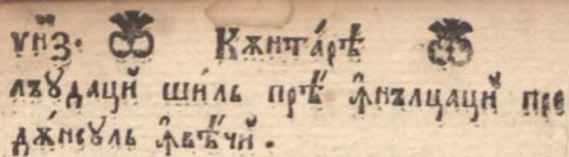 унз· Кѫнта́рѣ
лъꙋдаци̑ ши́ль прѣ̑ ꙟнълцаци̑ пре
дѫ́нсꙋль ꙟвѣ́чй.